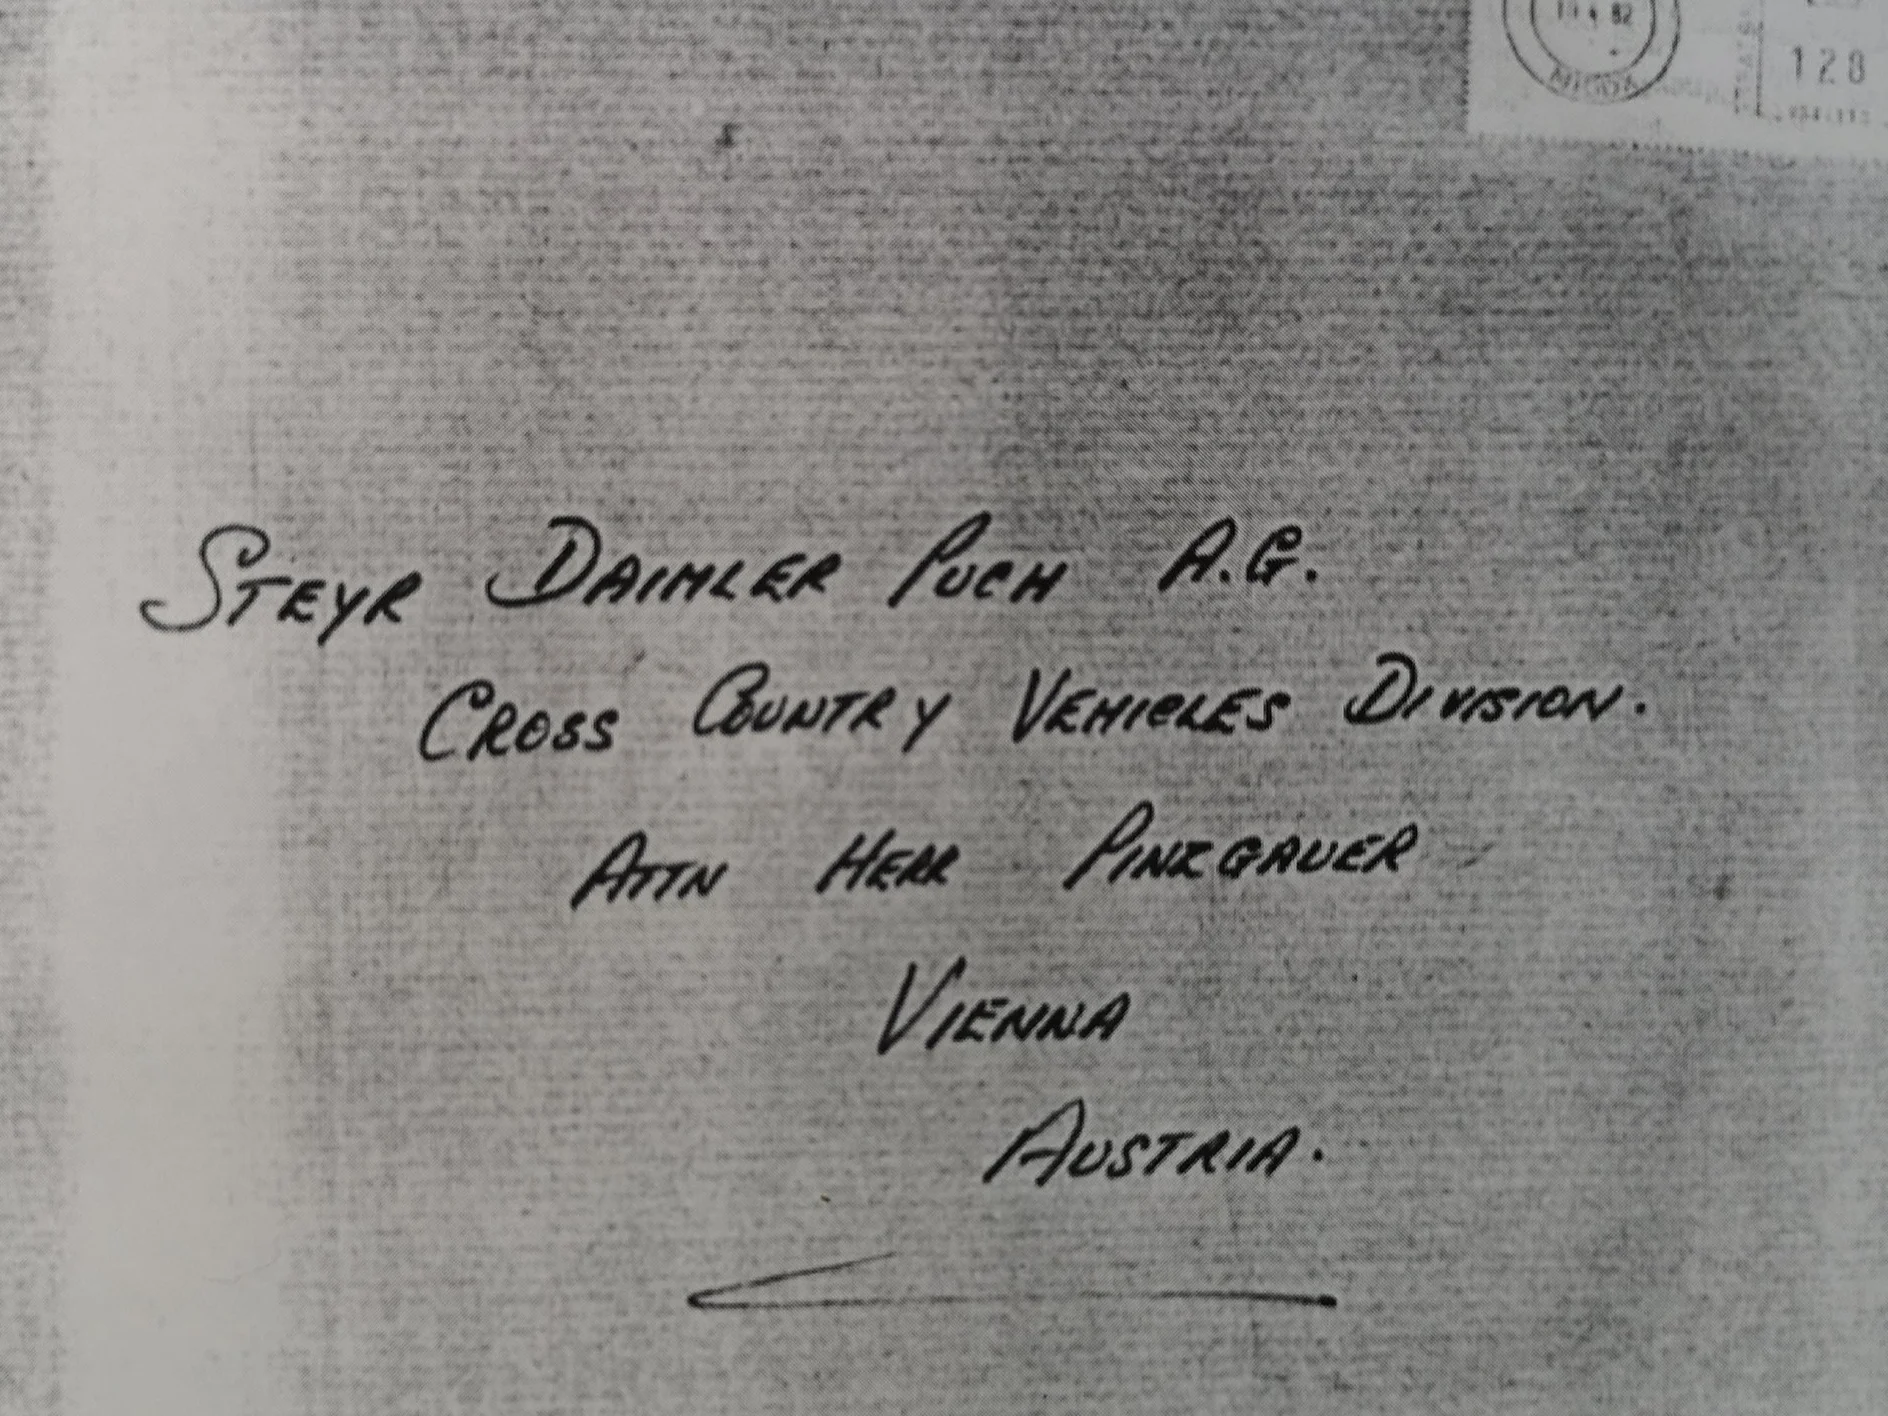 82
128
Steyr Daimler Puch A.G.
Cross Country Vehicles Division.
Attn Herr Pinzgauer
Vienna
Austria.